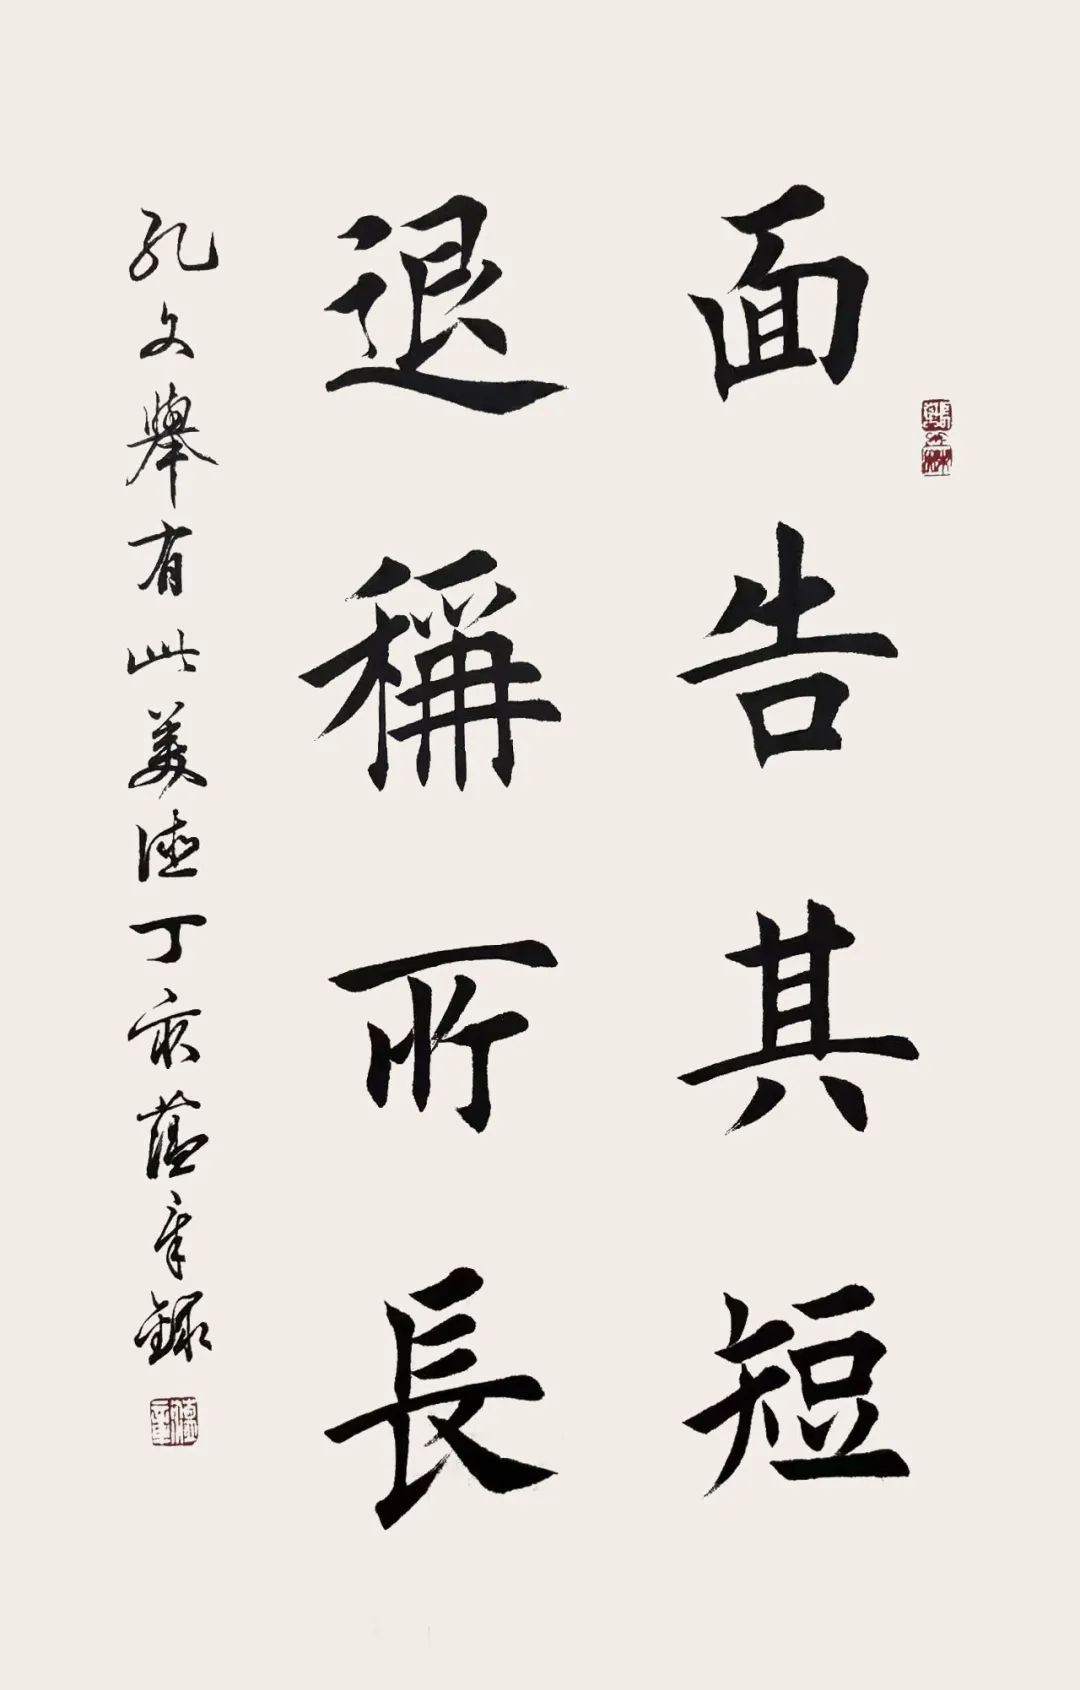 面告其短
退稱所長
孔文舉有此美德丁亥蘊章錄